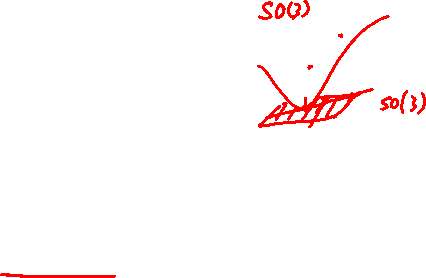 SO(3)
so(3)